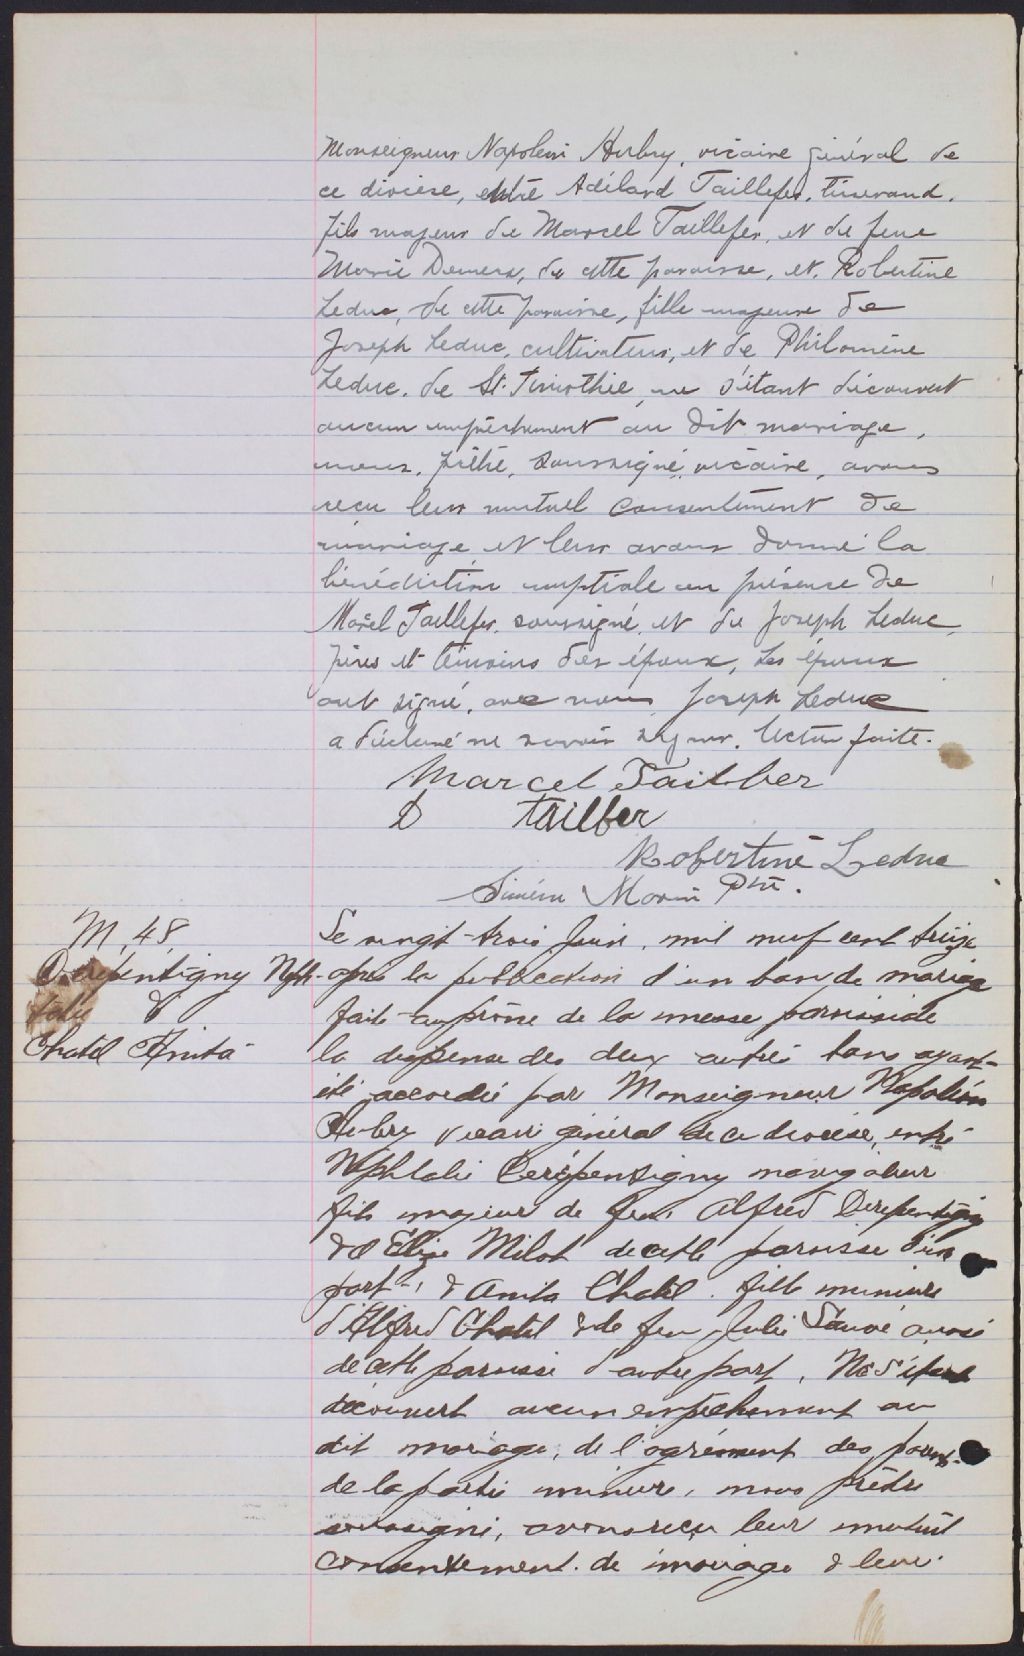 Monseigneur Napoléon Aubry, vicaire général de
ce diocèse, entre Adélard Taillefer, tisserand,
fils majeur de Marcel Taillefer, et de feue
Marie Demers, de cette paroisse, et, Robertine
Leduc, de cette paroisse, fille majeure de
Joseph Leduc, cultivateur, et de Philomène
Leduc, de St. Timothée, ne s'étant découvert
aucun empêchement au dit mariage,
nous, prêtre, soussigné, vicaire, avons
reçu leur mutuel consentement de
mariage et leur avons donné la
bénédiction nuptiale en présence de
Marcel Taillefer, soussigné, et de Joseph Leduc,
pères et témoins des époux, les époux
ont signé, avec nous, Joseph Leduc
a déclaré ne savoir signer. Lecture faite.
Marcel Tailber
D Tailfer
Robertine Leduc
Siméon Morin Ptre.
M. 48
Derépentigny Neph-
talie &
Chatel Anita
Le vingt-trois Juin, mil neuf cent treize
après la publication d'un ban de mariage
faite au prône de la messe paroissiale
la dispense des deux autres bans ayant
été accordée par Monseigneur Napoléon
Aubry vicaire général de ce diocèse, entre
Nephtalie Derépentigny navigateur
fils majeur de feu Alfred Derepentigny
& d'Eliza Milot de cette paroisse d'une
part, & Anita Chatel, fille mineure
d'Alfred Chatel & de feu Julie Sauvé aussi
de cette paroisse d'autre part, Ne s'étant
découvert aucun empêchement au
dit mariage, de l'agrément des parents
de la partie mineure, nous prêtre
soussigné, avons reçu leur mutuel
consentement de mariage & leur